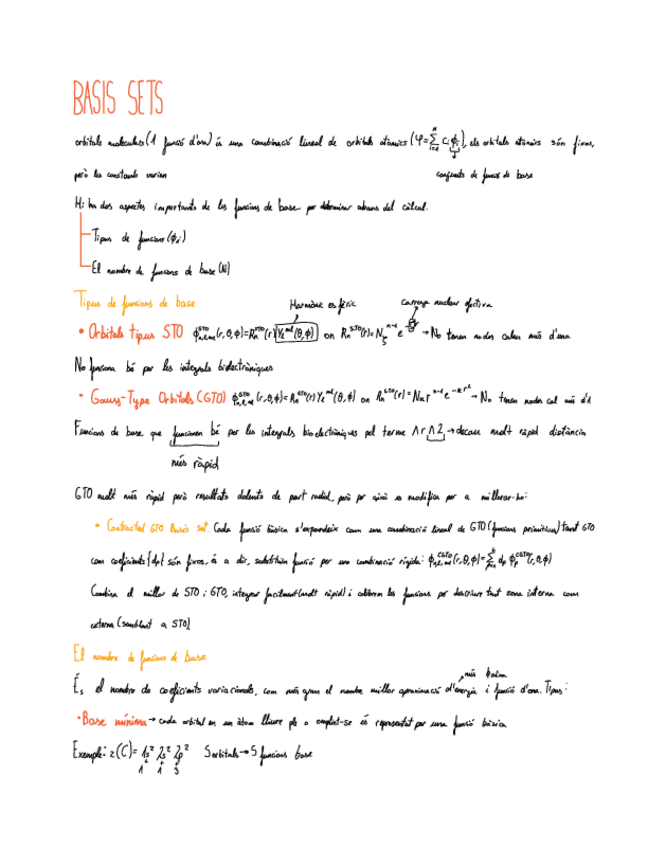 BASIS SETS
orbitals moleculars (1 funció d'ona) és una combinació lineal de orbitals atòmics (Ψ=∑ᵢ₌₁ᴺ cᵢϕᵢ), els orbitals atòmics són fixos,
però les constants varien conjunts de funció de base
Hi ha dos aspectes importants de les funcions de base per determinar abans del càlcul.
Tipus de funcions (ϕᵢ)
El nombre de funcions de base (N)
Tipus de funcions de base
Harmònic esfèric Carrega nuclear efectiva
• Orbitals tipus STO (r,θ,ϕ)=Rₙˢᵀᴼ(r) (θ,ϕ) on Rₙˢᵀᴼ(r)=N → No tenen nodes calen més d'una
No funciona bé per les integrals bielectròniques
• Gauss-Type Orbitals (GTO) (r,θ,ϕ)=Rₙᴳᵀᴼ(r) (θ,ϕ) on (r)=N → No tenen nodes cal més d'1
Funcions de base que funcionen bé per les integrals bioelectròniques pel terme ∧r∧2 → decau molt ràpid distància
més ràpid
GTO molt més ràpid però resultats dolents de part radial, però per això es modifica per a millorar-ho:
• Contracted GTO Basis set. Cada funció bàsica s'expandeix com una combinació lineal de GTO (funcions primitives) tant GTO
com coeficients {dp} són fixos, és a dir, substituïm funció per una combinació rígida: (r,θ,ϕ)=∑ dₚ (r,θ,ϕ)
Combina el millor de STO i GTO, integrar facilment (molt ràpid) i obtenim les funcions per descriure tant zona interna com
externa (semblant a STO)
El nombre de funcions de base
més baixa
És el nombre de coeficients variacionals, com més gran el nombre millor aproximació d'energia i funció d'ona. Tipus:
• Base mínima → cada orbital en un àtom lliure ple o omplint-se és representat per una funció bàsica
Exemple: (C)= 1s² 2s² 2p² 5 orbitals → 5 funcions base
1 1 3